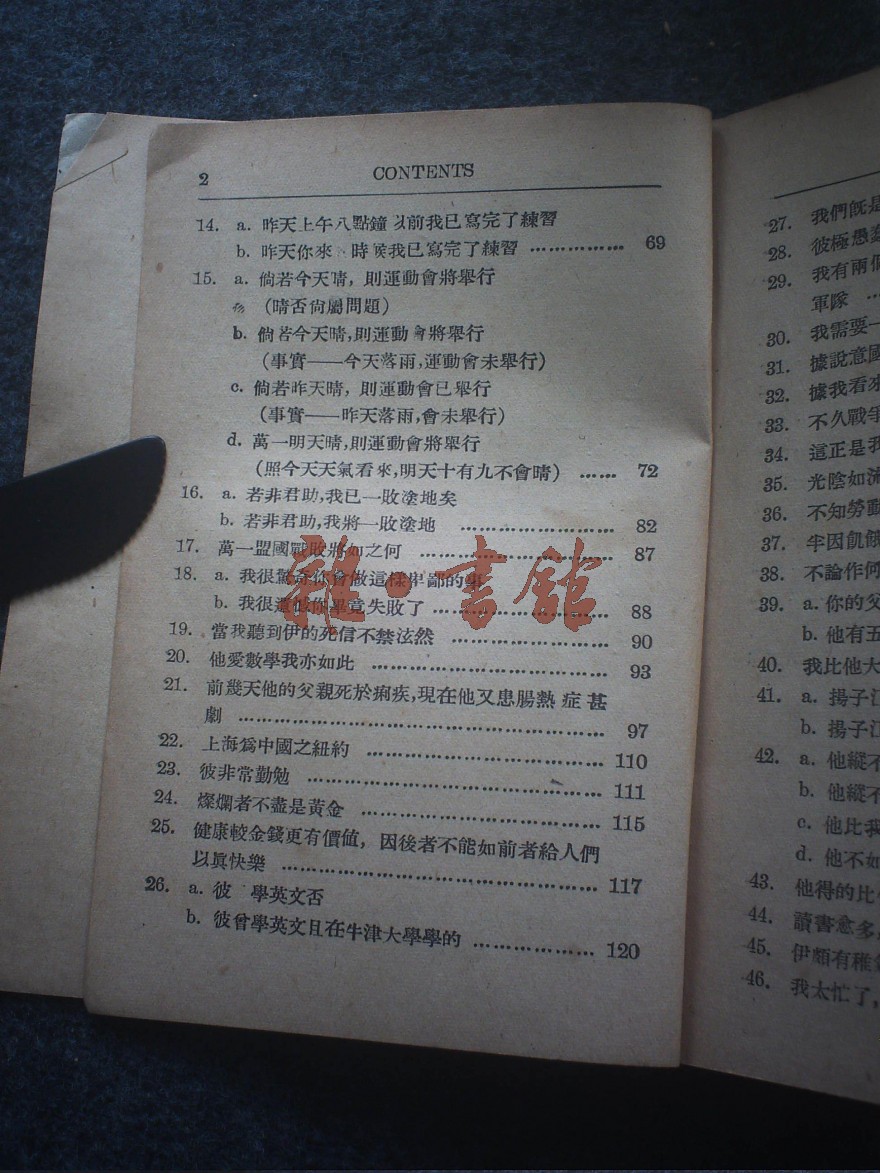 2 CONTENTS
14. a. 昨天上午八點鐘以前我已寫完了練習
b. 昨天你來 時候我已寫完了練習 …………… 69
15. a. 倘若今天晴，則運動會將舉行
(晴否尙屬問題)
b. 倘若今天晴,則運動會將舉行
(事實——今天落雨,運動會未舉行)
c. 倘若昨天晴，則運動會已舉行
(事實——昨天落雨,會未舉行)
d. 萬一明天晴,則運動會將舉行
(照今天天氣看來,明天十有九不會晴) …… 72
16. a. 若非君助,我已一敗塗地矣
b. 若非君助,我將一敗塗地 …………………… 82
17. 萬一盟國戰敗將如之何 ………………………… 87
18. a. 我很驚奇你會做這樣卑鄙的事
b. 我很遺憾你畢竟失敗了 ……………………… 88
19. 當我聽到伊的死信不禁泫然 …………………… 90
20. 他愛數學我亦如此 ……………………………… 93
21. 前幾天他的父親死於痢疾,現在他又患腸熱症甚
劇 ………………………………………………… 97
22. 上海爲中國之紐約 ……………………………… 110
23. 彼非常勤勉 ……………………………………… 111
24. 燦爛者不盡是黃金 ……………………………… 115
25. 健康較金錢更有價値，因後者不能如前者給人們
以眞快樂 ………………………………………… 117
26. a. 彼 學英文否
b. 彼曾學英文且在牛津大學學的 ……………… 120
27. 我們旣是
28. 彼極愚
29. 我有兩個
軍隊 …
30. 我需要一
31. 據說意國
32. 據我看來
33. 不久戰爭
34. 這正是我
35. 光陰如流
36. 不知勞動
37. 牢因飢餓
38. 不論作何
39. a. 你的父
b. 他有五
40. 我比他大
41. a. 揚子江
b. 揚子江
42. a. 他縱不
b. 他縱不
c. 他比我
d. 他不如
43. 他得的比
44. 讀書愈多
45. 伊頗有稚氣
46. 我太忙了,
雜·書館